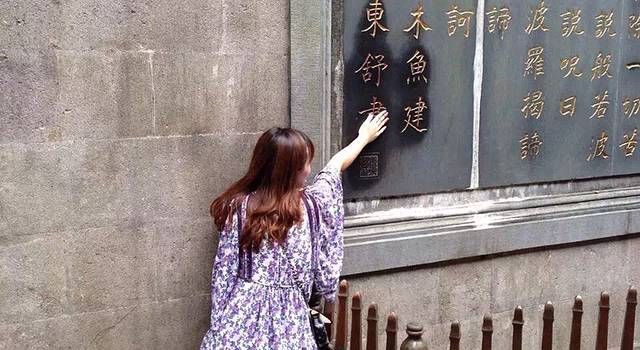 除一切苦
説般若波
説呪曰
波羅揭諦
諦
訶
木魚建
東舒